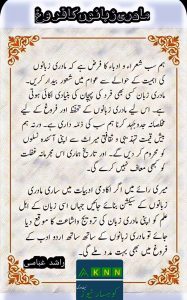 مادری زبانوں کا فروغ
ہم سب شعراء و ادباء کا فرض ہے کہ مادری زبانوں
کی اہمیت کے حوالے سے عوام میں شعور بیدار کریں۔
مادری زبان کسی بھی فرد کی پہچان کی بنیادی اکائی ہوتی
ہے۔ اس لیے مادری زبانوں کے تحفظ اور فروغ کے لیے
مخلصانہ جدوجہد کرنا ہم سب کی ذمہ داری ہے۔ ورنہ ہم
بیش قیمت تہذیبی و ثقافتی میراث سے اپنی آئندہ نسلوں
کو محروم کر دیں گے۔ اور تاریخ ہماری اس مجرمانہ غفلت
کو کبھی معاف نہیں کرے گی۔
میری رائے میں اگر اکادمی ادبیات میں ساری مادری
زبانوں کے سیکشن بنائے جائیں جہاں اسی زبان کے اہل
علم کو اپنی مادری زبان کی ترویج و اشاعت کا موقع دیا
جائے تو مادری زبانوں کے ساتھ ساتھ اردو ادب کے
فروغ میں بھی بہت مدد ملے گی۔
راشد عباسی
KNN
کوہسار نیوز